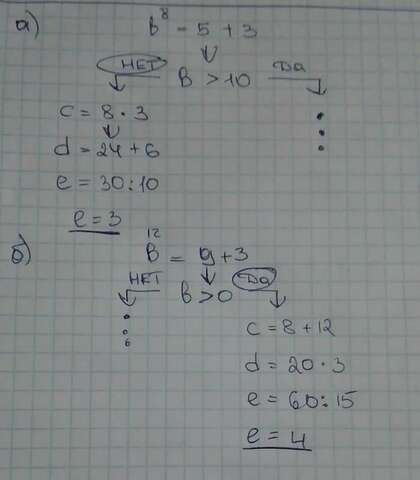 а) 8
в = 5 + 3
НЕТ в > 10 Да
c = 8 · 3
d = 24 + 6
e = 30 : 10
e = 3
12
б) в = 9 + 3
НЕТ в > 0 Да
c = 8 + 12
d = 20 · 3
e = 60 : 15
e = 4